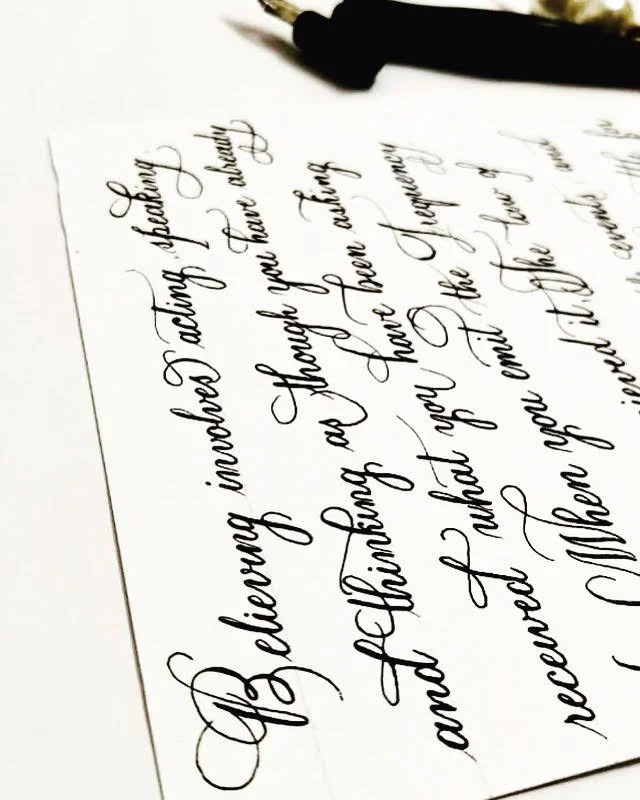 Believing involves acting speaking
and thinking as though you have already
received what you have been asking
When you emit the Frequency
it. The law of
events and